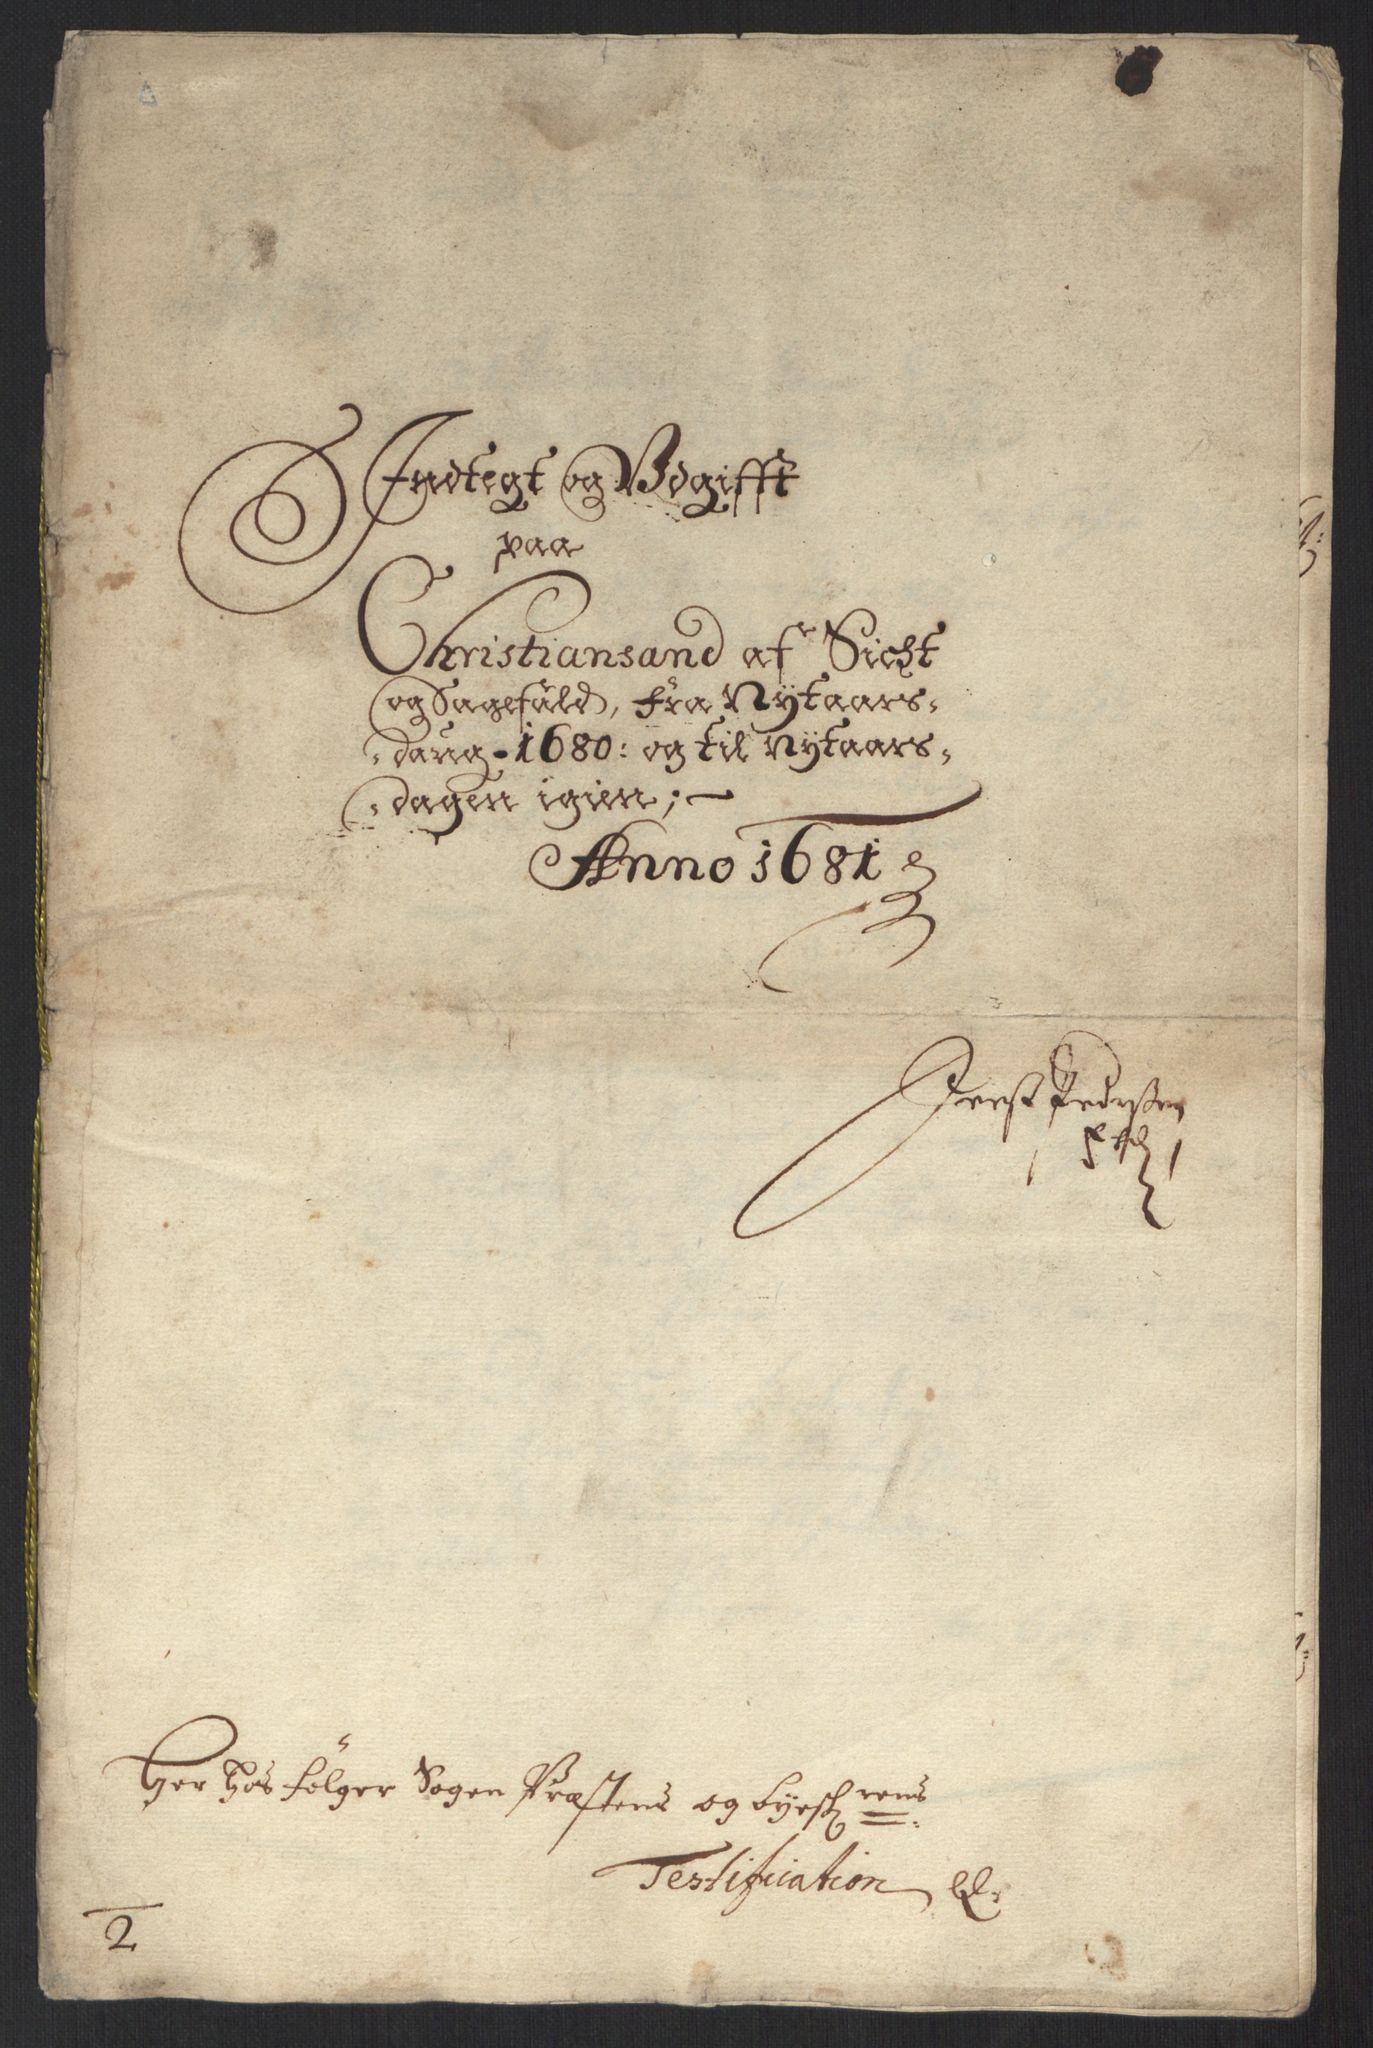 Indtegt og Vdgifft
paa
Christiansand af Sicht
og Sagefald, fra Nytaars-
daug 1680: og til Nytaars-
dagen igien;
Anno 1681
Pedersen
Her hos følger Sogen Præstens og byesch rens
Testification
2